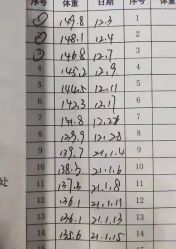 序号 体重 日期 序号
1 149.8 12.3 1
2 148.1 12.4 2
3 146.8 12.7 3
4 145.2 12.9 4
5 144.5 12.11 5
6 142.3 12.17 6
7 141.8 7
8 139.9 12.28 8
9 139.7 21.1.4 9
10 138.3 21.1.6 10
11 137.3 21.1.8 11
12 136.1 21.1.11 12
13 21.1.13 13
14 135.6 21.1.15 14
处